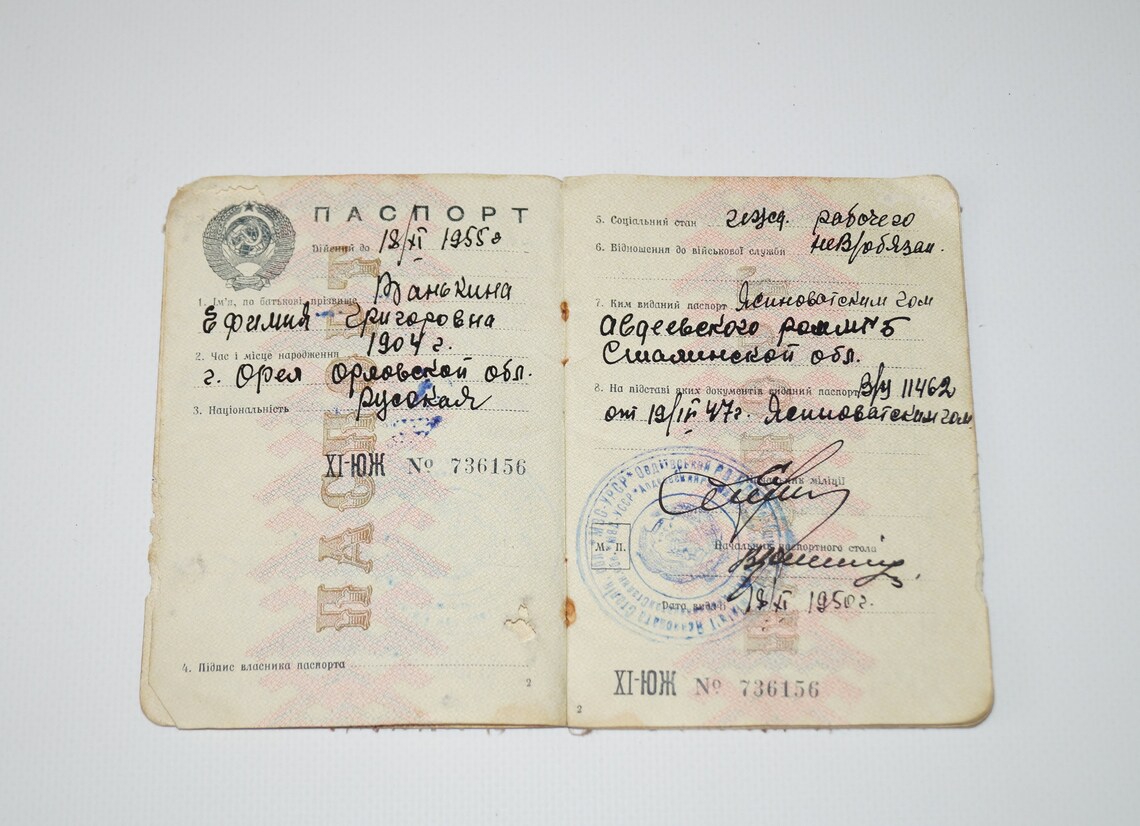 ПАСПОРТ
Дійсний до 18/XI 1955г
1. Ім'я, по батькові, прізвище Ванькина
Ефимия Григоровна
1904 г.
2. Час і місце народження
г. Орел Орловской обл.
3. Національність русская
ПАСПОРТ
XI-ЮЖ № 736156
4. Підпис власника паспорта
2
5. Соціальний стан ижд. рабочего
6. Відношення до військової служби нев/обязан.
7. Ким виданий паспорт Ясиноватским гом
Авдеевского
Сталинской обл.
8. На підставі яких документів виданий паспорт В/у 11462
от 19/III 47г. Ясиноватским гом
Начальник міліції
М. П.
Начальник паспортного стола
Дата видачі 18/XI 1950г.
XI-ЮЖ № 736156
2